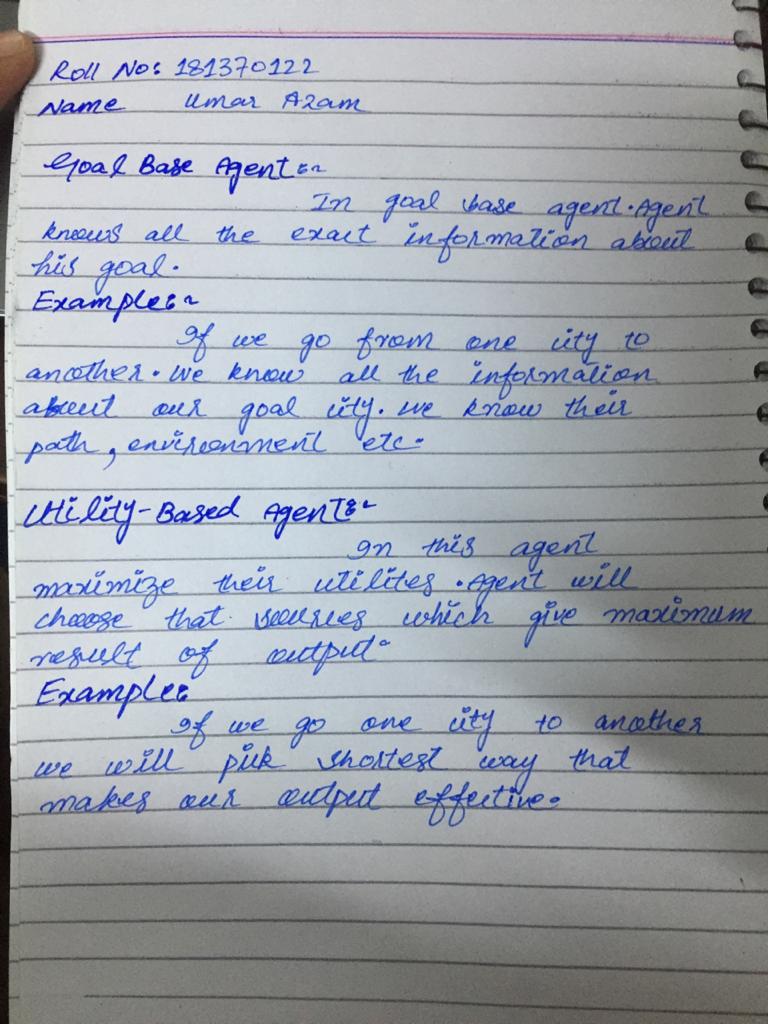 Roll No: 181370122
Name Umar Azam
Goal Base Agent:~
In goal base agent. Agent
knows all the exact information about
his goal.
Example:~
If we go from one city to
another. We know all the information
about our goal city. We know their
path, environment etc.
Utility-Based Agent:~
In this agent
maximize their utilites. Agent will
choose that sources which give maximum
result of output.
Example:
If we go one city to another
we will pick shortest way that
makes our output effective.